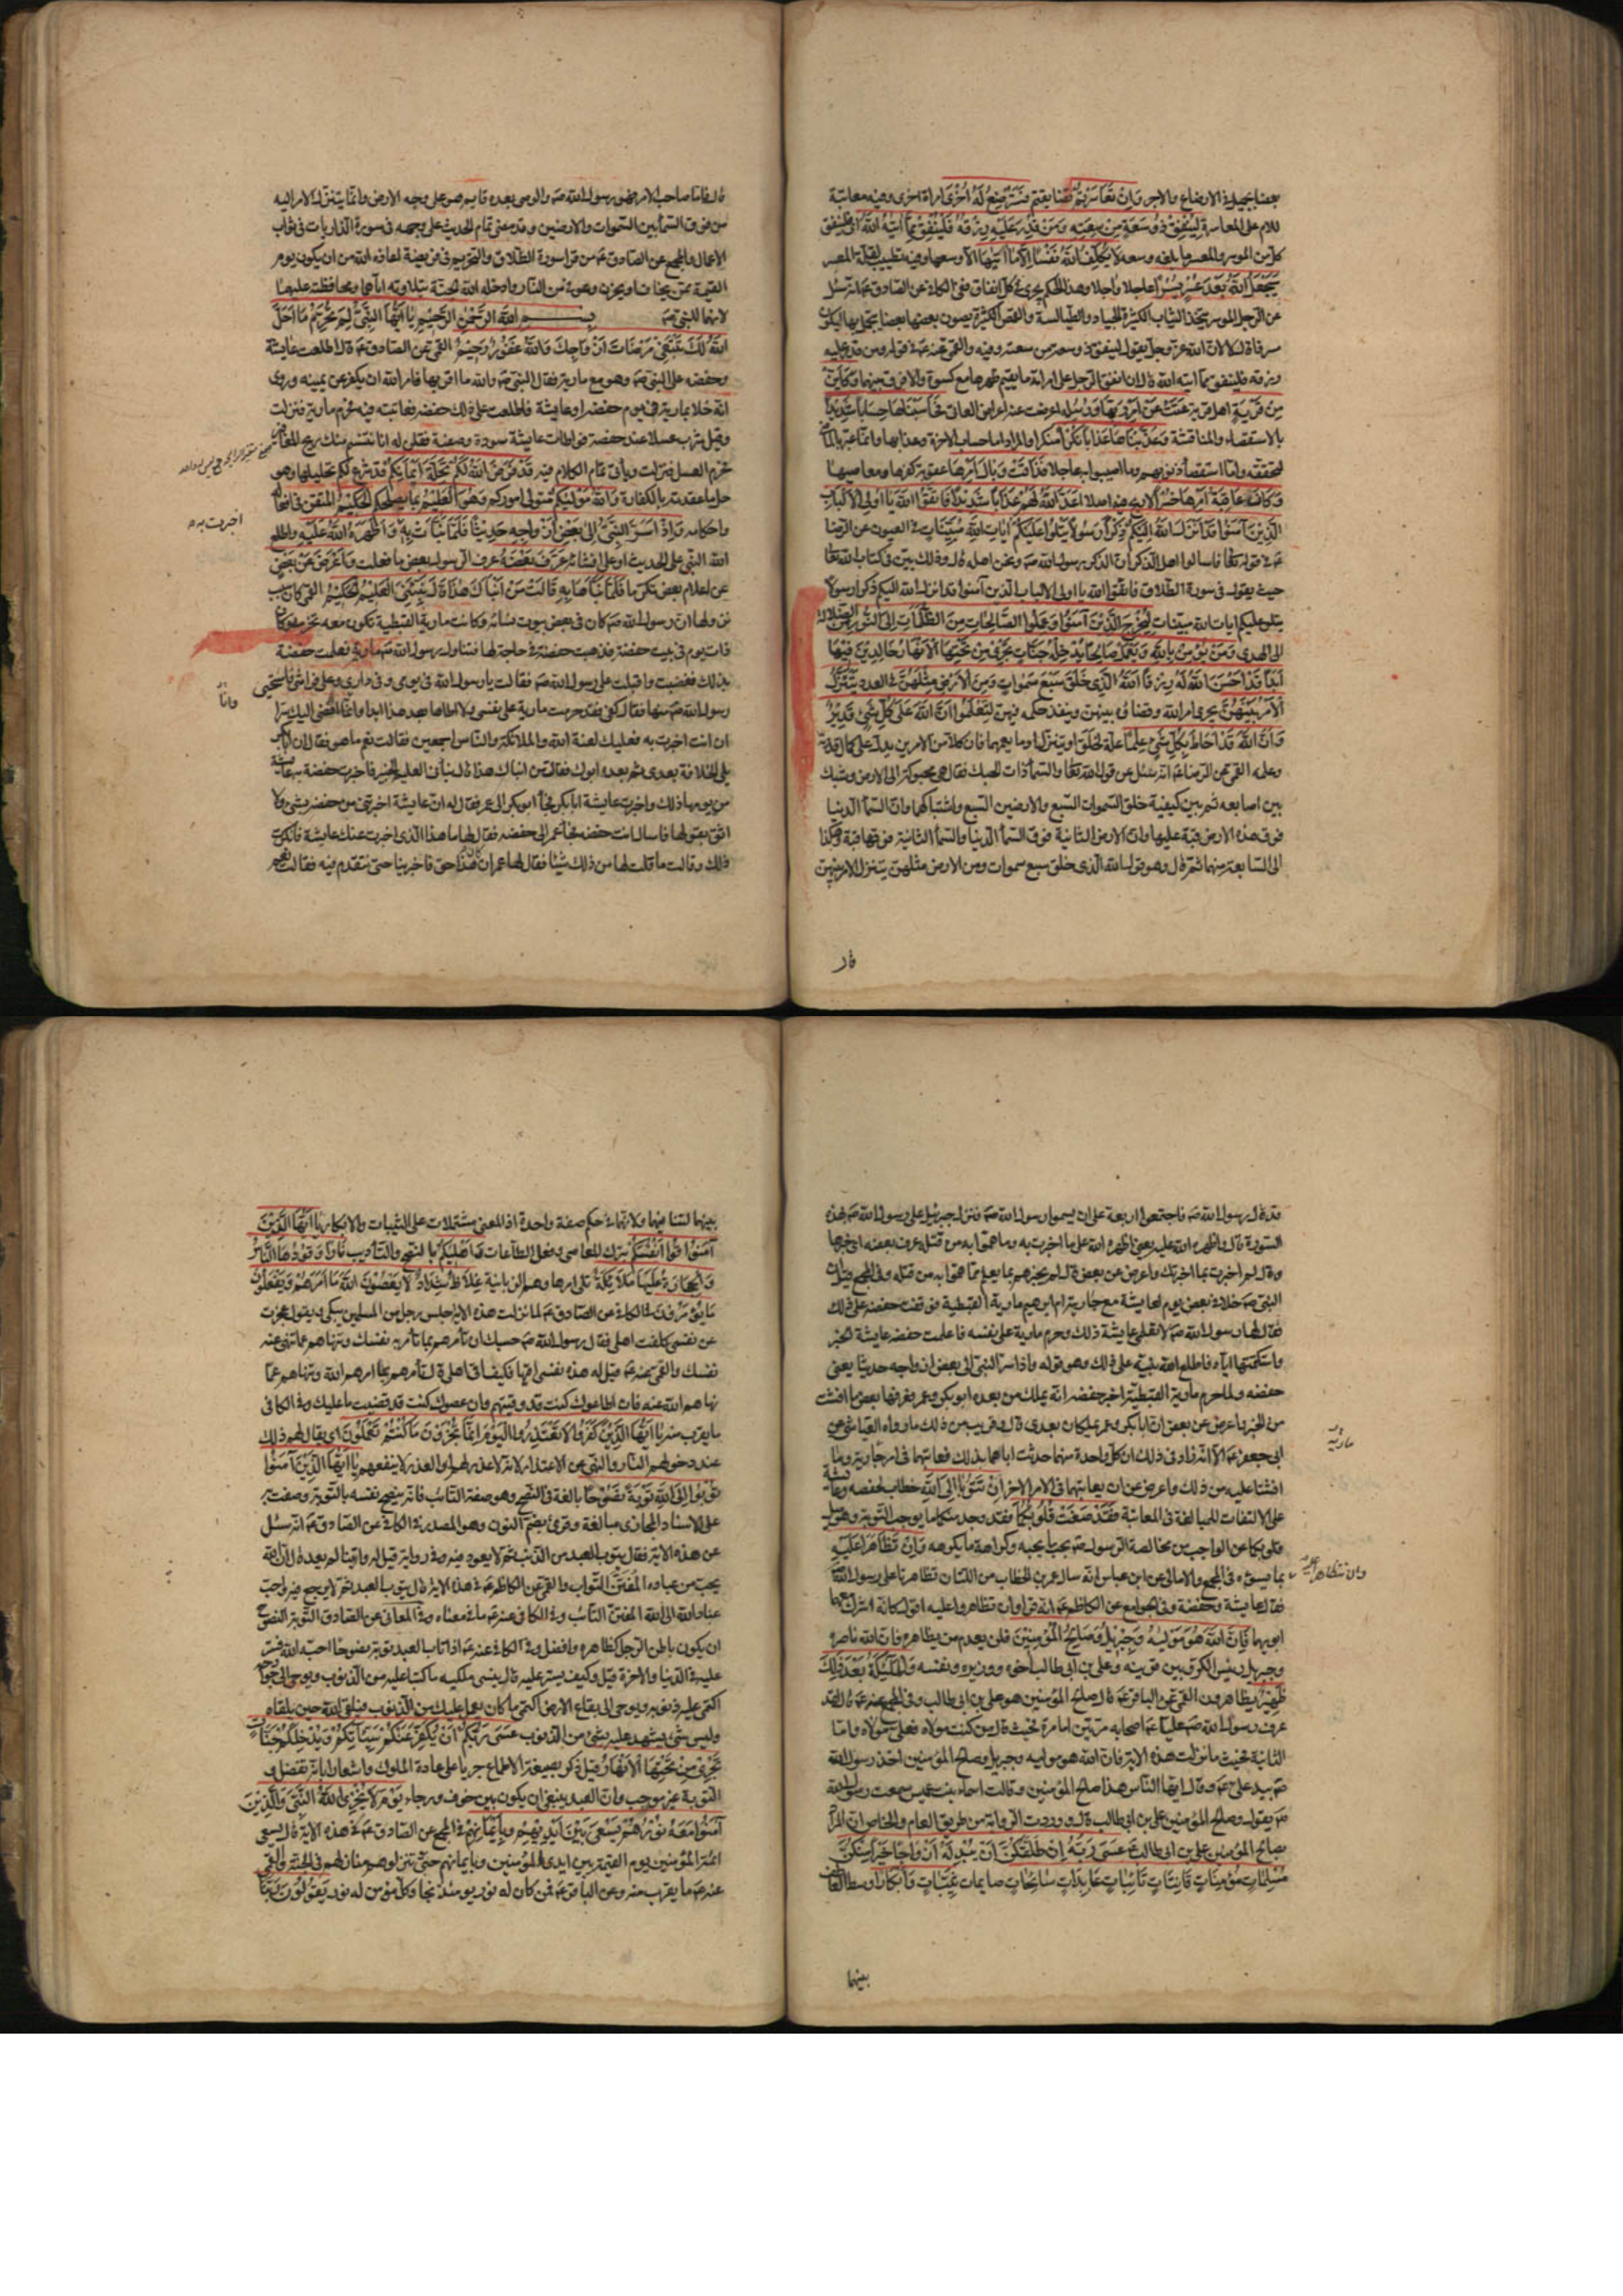 بعضا بجميل في الارضاع والاجر وَاِنْ تَعَاسَرْتُمْ تضايقتم فَسَتُرْضِعُ لَهُ اُخْرَى امراة اخرى وفيه معاتبة
للام على المعاسرة لِيُنْفِقْ ذُو سَعَةٍ مِنْ سَعَتِهِ وَمَنْ قُدِرَ عَلَيْهِ رِزْقُهُ فَلْيُنْفِقْ مِمَّا آتَيهُ اللهُ اى فلينفق
كل من الموسر والمعسر ما بلغه وسعه لَا يُكَلِّفُ اللهُ نَفْسًا اِلَّا مَا آتَيهَا الا وسعها وفيه تطييب لقلب المعسر
سَيَجْعَلُ اللهُ بَعْدَ عُسْرٍ يُسْرًا عاجلا واجلا وهذا الحكم يجرى فى كل انفاق ففى الكافى عن الصادق ع انه سئل
عن الرجل الموسر يتخذ الثياب الكثيرة الجياد والطيالسة والقمص الكثيرة يصون بعضها بعضا يتجمل بها ايكون
مسرفا قال لا لان الله عز وجل يقول لينفق ذو سعة من سعته وفيه والقمى عنه ع فى قوله ومن قدر عليه
رزقه فلينفق مما آتيه الله قال ان انفق الرجل على امراته ما يقيم ظهرها مع كسوة والا فرق بينهما وَكَاَيِّنْ
مِنْ قَرْيَةٍ اهل قرية عَتَتْ عَنْ اَمْرِ رَبِّهَا وَرُسُلِهِ اعرضت عنه اعراض العاتى فَحَاسَبْنَاهَا حِسَابًا شَدِيدًا
بالاستقصاء والمناقشة وَعَذَّبْنَاهَا عَذَابًا نُكْرًا منكرا والمراد اما حساب الاخرة وعذابها وانما عبر بالماضى
لتحققه واما استقصاء ذنوبهم وما اصيبوا به عاجلا فَذَاقَتْ وَبَالَ اَمْرِهَا عقوبة كفرها ومعاصيها
وَكَانَ عَاقِبَةُ اَمْرِهَا خُسْرًا لا ربح فيه اصلا اَعَدَّ اللهُ لَهُمْ عَذَابًا شَدِيدًا فَاتَّقُوا اللهَ يَا اُولِى الْاَلْبَابِ
الَّذِينَ آمَنُوا قَدْ اَنْزَلَ اللهُ اِلَيْكُمْ ذِكْرًا رَسُولًا يَتْلُوا عَلَيْكُمْ آيَاتِ اللهِ مُبَيِّنَاتٍ فى العيون عن الرضا
ع فى قوله تعالى فاسالوا اهل الذكر ان الذكر رسول الله ص ونحن اهله قال وذلك بين فى كتاب الله تعالى
حيث يقول فى سورة الطلاق فاتقوا الله يا اولى الالباب الذين آمنوا قد انزل الله اليكم ذكرا رسولا
يتلو عليكم ايات الله مبينات لِيُخْرِجَ الَّذِينَ آمَنُوا وَعَمِلُوا الصَّالِحَاتِ مِنَ الظُّلُمَاتِ اِلَى النُّورِ من الضلالة
الى الهدى وَمَنْ يُؤْمِنْ بِاللهِ وَيَعْمَلْ صَالِحًا يُدْخِلْهُ جَنَّاتٍ تَجْرِى مِنْ تَحْتِهَا الْاَنْهَارُ خَالِدِينَ فِيهَا
اَبَدًا قَدْ اَحْسَنَ اللهُ لَهُ رِزْقًا اَللهُ الَّذِى خَلَقَ سَبْعَ سَمٰوَاتٍ وَمِنَ الْاَرْضِ مِثْلَهُنَّ فى العدد يَتَنَزَّلُ
الْاَمْرُ بَيْنَهُنَّ يجرى امر الله وقضاؤه بينهن وينفذ حكمه فيهن لِتَعْلَمُوا اَنَّ اللهَ عَلَى كُلِّ شَىْءٍ قَدِيرٌ
وَاَنَّ اللهَ قَدْ اَحَاطَ بِكُلِّ شَىْءٍ عِلْمًا علة لخلق او يتنزل او ما يعمهما فان كلا من الامرين يدل على كمال قدرته
وعلمه القمى عن الرضا ع انه سئل عن قول الله تعالى والسماء ذات الحبك فقال هى محبوكة الى الارض وشبك
بين اصابعه ثم بين كيفية خلق السموات السبع والارضين السبع واشتباكها وان السماء الدنيا
فوق هذه الارض قبة عليها وان الارض الثانية فوق السماء الدنيا والسماء الثانية فوقها قبة وهكذا
الى السابعة منهما ثم قال وهو قول الله الذى خلق سبع سموات ومن الارض مثلهن يتنزل الامر بينهن
قال
قال فاما صاحب الامر فهو رسول الله ص والوصى بعده قايم هو على وجه الارض وانما يتنزل الامر اليه
من فوق السماء بين السموات والارضين وقد مضى تمام الحديث على وجهه فى سورة الذاريات فى ثواب
الاعمال والمجمع عن الصادق ع من قرا سورة الطلاق والتحريم فى فريضة اعاذه الله من ان يكون يوم
القيمة ممن يخاف او يحزن وعوفى من النار وادخله الله الجنة بتلاوته اياهما ومحافظته عليهما
لانهما للنبى ص بِسْمِ اللهِ الرَّحْمٰنِ الرَّحِيمِ يَا اَيُّهَا النَّبِىُّ لِمَ تُحَرِّمُ مَا اَحَلَّ
اللهُ لَكَ تَبْتَغِى مَرْضَاتَ اَزْوَاجِكَ وَاللهُ غَفُورٌ رَحِيمٌ القمى عن الصادق ع قال اطلعت عايشة
وحفصة على النبى ص وهو مع مارية فقال النبى ص والله ما اقربها فامر الله ان يكفر عن يمينه وروى
انه خلا بمارية فى يوم حفصة او عايشة فاطلعت على ذلك حفصة فعاتبته فيه فحرم مارية فنزلت
وقيل شرب عسلا عند حفصة فواطات عايشة سودة وصفية فقلن له انا نشم منك ريح المغافير
فحرم العسل فنزلت وياتى تمام الكلام فيه قَدْ فَرَضَ اللهُ لَكُمْ تَحِلَّةَ اَيْمَانِكُمْ قد شرع لكم تحليلها وهو
حل ما عقدته بالكفارة وَاللهُ مَوْلَيكُمْ متولى اموركم وَهُوَ الْعَلِيمُ بما يصلحكم الْحَكِيمُ المتقن فى افعاله
واحكامه وَاِذْ اَسَرَّ النَّبِىُّ اِلَى بَعْضِ اَزْوَاجِهِ حَدِيثًا فَلَمَّا نَبَّاَتْ بِهِ وَاَظْهَرَهُ اللهُ عَلَيْهِ واطلع
اخبرت به
الله النبى على الحديث او على افشائه عَرَّفَ بَعْضَهُ عرف الرسول بعض ما فعلت وَاَعْرَضَ عَنْ بَعْضٍ
عن اعلام بعض تكرما فَلَمَّا نَبَّاَهَا بِهِ قَالَتْ مَنْ اَنْبَاَكَ هٰذَا قَالَ نَبَّاَنِىَ الْعَلِيمُ الْخَبِيرُ القمى كان سبب
نزولها ان رسول الله ص كان فى بعض بيوت نسائه وكانت مارية القبطية تكون معه تخدمه وكان
ذات يوم فى بيت حفصة فذهبت حفصة فى حاجة لها فتناول رسول الله ص مارية فعلمت حفصة
بذلك فغضبت واقبلت على رسول الله ص فقالت يا رسول الله فى يومى وفى دارى وعلى فراشى فاستحيى
رسول الله ص منها فقال كفى فقد حرمت مارية على نفسى ولا اطاها بعد هذا ابدا وانا افضى اليك سرا
وانا
ان انت اخبرت به فعليك لعنة الله والملائكة والناس اجمعين فقالت نعم ما هو فقال ان ابا بكر
يلى الخلافة بعدى ثم بعده ابوك فقالت من انباك هذا قال نبأنى العليم الخبير فاخبرت حفصة به عايشة
من يومها ذلك واخبرت عايشة ابا بكر فجاء ابو بكر الى عمر فقال له ان عايشة اخبرتنى عن حفصة بشىء ولا
اثق بقولها فاسال انت حفصة فجاء عمر الى حفصة فقال لها ما هذا الذى اخبرت عنك عايشة فانكرت
ذلك وقالت ما قلت لها من ذلك شيئا فقال لها عمر ان كان هذا حق فاخبرينا حتى نتقدم فيه فقالت نعم
قد قال رسول الله ص فاجتمعوا اربعة على ان يسموا رسول الله ص فنزل جبرئيل على رسول الله ص بهذه
السورة قال واظهره الله عليه يعنى اظهره الله على ما اخبرت به وما هموا به من قتله عرف بعضه اى خبرها
وقال لم اخبرت بما اخبرتك واعرض عن بعض قال لم يخبرهم بما يعلم مما هموا به من قتله وفى المجمع قيل ان
النبى ص خلا فى بعض يوم لعايشة مع جاريته ام ابراهيم مارية القبطية فوقفت حفصة على ذلك
فقال لها رسول الله ص لا تعلمى عايشة ذلك وحرم مارية على نفسه فاعلمت حفصة عايشة الخبر
واستكتمتها اياه فاطلع الله نبيه على ذلك وهو قوله واذ اسر النبى الى بعض ازواجه حديثا يعنى
حفصة ولما حرم مارية القبطية اخبر حفصة انه يملك من بعده ابو بكر وعمر فعرفها بعض ما افشت
من الخبر واعرض عن بعض ان ابا بكر وعمر يملكان بعدى قال وقريب من ذلك ما رواه العياشى عن
ابى جعفر ع الا انه زاد فى ذلك ان كل واحدة منهما حدثت اباها بذلك فعاتبهما فى امر مارية وما
مارية
افشتا عليه من ذلك واعرض عن ان يعاتبهما فى الامر الاخر اِنْ تَتُوبَا اِلَى اللهِ خطاب لحفصة وعايشة
على الالتفات للمبالغة فى المعاتبة فَقَدْ صَغَتْ قُلُوبُكُمَا فقد وجد منكما ما يوجب التوبة وهو ميل
قلوبكما عن الواجب من مخالصة الرسول ص بحب ما يحبه وكراهة ما يكرهه وَاِنْ تَظَاهَرَا عَلَيْهِ
بما يسوؤه فى المجمع والامالى عن ابن عباس انه سال عمر بن الخطاب من اللتان تظاهرتا على رسول الله
وان تظاهرا عليه
فقال عايشة وحفصة وفى الجوامع عن الكاظم ع انه قرا وان تظاهروا عليه اقول كانه اشرك معهما
ابويهما فَاِنَّ اللهَ هُوَ مَوْلَيهُ وَجِبْرِيلُ وَصَالِحُ الْمُؤْمِنِينَ فلن يعدم من يظاهره فان الله ناصره
وجبريل رئيس الكروبيين قرينه وعلى بن ابى طالب اخوه ووزيره ونفسه وَالْمَلٰئِكَةُ بَعْدَ ذٰلِكَ
ظَهِيرٌ متظاهرون القمى عن الباقر ع قال صالح المؤمنين هو على بن ابى طالب وفى المجمع عنه ع قال لقد
عرف رسول الله ص عليا ع اصحابه مرتين اما مرة فحيث قال من كنت مولاه فعلى مولاه واما
الثانية فحيث ما نزلت هذه الاية فان الله هو موليه وجبريل وصالح المؤمنين اخذ رسول الله
ص بيد على ع وقال ايها الناس هذا صالح المؤمنين وقالت اسماء بنت عميس سمعت رسول الله
ص يقول وصالح المؤمنين على بن ابى طالب قال ووردت الرواية من طريق العام والخاص ان المراد
بصالح المؤمنين على بن ابى طالب ع عَسَى رَبُّهُ اِنْ طَلَّقَكُنَّ اَنْ يُبْدِلَهُ اَزْوَاجًا خَيْرًا مِنْكُنَّ
مُسْلِمَاتٍ مُؤْمِنَاتٍ قَانِتَاتٍ تَائِبَاتٍ عَابِدَاتٍ سَائِحَاتٍ صايمات ثَيِّبَاتٍ وَاَبْكَارًا وسط العاطف
بينهما
بينهما لتنافيهما ولانهما فى حكم صفة واحدة اذ المعنى مشتملات على الثيبات والابكار يَا اَيُّهَا الَّذِينَ
آمَنُوا قُوا اَنْفُسَكُمْ بترك المعاصى وفعل الطاعات وَاَهْلِيكُمْ بالنصح والتاديب نَارًا وَقُودُهَا النَّاسُ
وَالْحِجَارَةُ عَلَيْهَا مَلَائِكَةٌ تلى امرها وهم الزبانية غِلَاظٌ شِدَادٌ لَا يَعْصُونَ اللهَ مَا اَمَرَهُمْ وَيَفْعَلُونَ
مَا يُؤْمَرُونَ فى الكافى عن الصادق ع لما نزلت هذه الاية جلس رجل من المسلمين يبكى ويقول عجزت
عن نفسى كلفت اهلى فقال رسول الله ص حسبك ان تامرهم بما تامر به نفسك وتنهاهم عما تنهى عنه
نفسك والقمى عنه ع قيل له هذه نفسى اقيها فكيف اقى اهلى قال تامرهم بما امرهم الله وتنهاهم عما
نهاهم الله عنه فان اطاعوك كنت قد وقيتهم وان عصوك كنت قد قضيت ما عليك وفى الكافى
ما يقرب منه يَا اَيُّهَا الَّذِينَ كَفَرُوا لَا تَعْتَذِرُوا الْيَوْمَ اِنَّمَا تُجْزَوْنَ مَا كُنْتُمْ تَعْمَلُونَ اى يقال لهم ذلك
عند دخولهم النار والنهى عن الاعتذار لانه لا عذر لهم او العذر لا ينفعهم يَا اَيُّهَا الَّذِينَ آمَنُوا
تُوبُوا اِلَى اللهِ تَوْبَةً نَصُوحًا بالغة فى النصح وهو صفة التائب فانه ينصح نفسه بالتوبة وصفت به
على الاسناد المجازى مبالغة وقرئ بضم النون وهو المصدر فى الكافى عن الصادق ع انه سئل
عن هذه الاية فقال يتوب العبد من الذنب ثم لا يعود فيه وفى رواية قيل له واينا لم يعد قال ان الله
يحب من عباده المفتن التواب والقمى عن الكاظم ع فى هذه الاية قال يتوب العبد ثم لا يرجع فيه واحب
عباد الله الى الله المفتن التائب وفى الكافى عنه ع ما فى معناه وفى المعانى عن الصادق التوبة النصوح
ان يكون باطن الرجل كظاهره وافضل وفى الكافى عنه ع اذا تاب العبد توبة نصوحا احبه الله فستر
عليه فى الدنيا والاخرة قيل وكيف يستر عليه قال ينسى ملكيه ما كتبا عليه من الذنوب ويوحى الى جوارحه
اكتمى عليه ذنوبه ويوحى الى بقاع الارض اكتمى ما كان يعمل عليك من الذنوب فيلقى الله حين يلقاه
وليس شىء يشهد عليه بشىء من الذنوب عَسَى رَبُّكُمْ اَنْ يُكَفِّرَ عَنْكُمْ سَيِّئَاتِكُمْ وَيُدْخِلَكُمْ جَنَّاتٍ
تَجْرِى مِنْ تَحْتِهَا الْاَنْهَارُ قيل ذكر بصيغة الاطماع جريا على عادة الملوك واشعارا بانه تفضل و
التوبة غير موجب وان العبد ينبغى ان يكون بين خوف ورجاء يَوْمَ لَا يُخْزِى اللهُ النَّبِىَّ وَالَّذِينَ
آمَنُوا مَعَهُ نُورُهُمْ يَسْعَى بَيْنَ اَيْدِيهِمْ وَبِاَيْمَانِهِمْ فى المجمع عن الصادق ع فى هذه الاية قال يسعى
ائمة المؤمنين يوم القيمة بين ايدى المؤمنين وبايمانهم حتى ينزلوهم منازلهم فى الجنة والقمى
عنه ع ما يقرب منه وعن الباقر ع فمن كان له نور يومئذ نجا وكل مؤمن له نور يَقُولُونَ رَبَّنَا